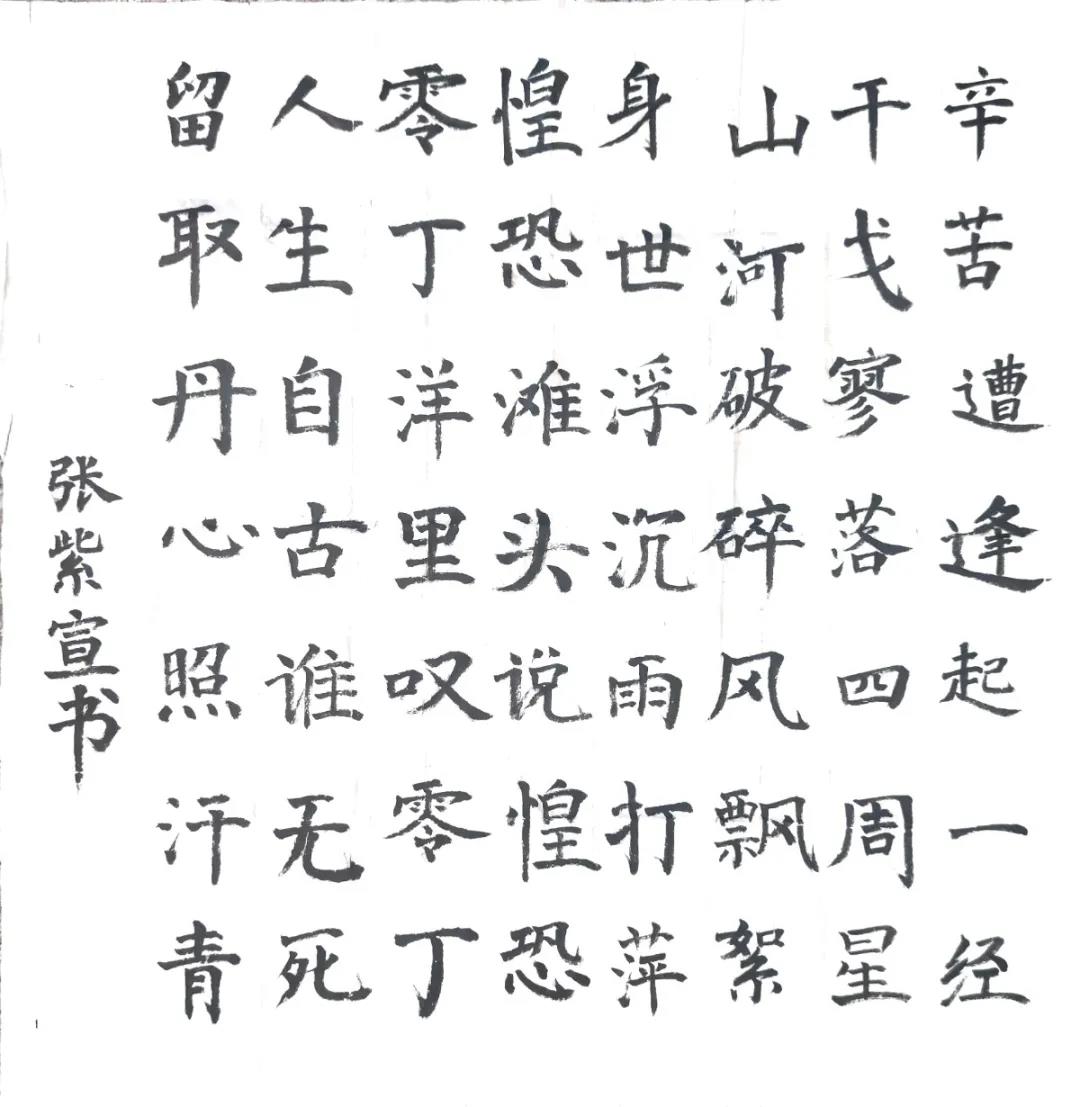 辛苦遭逢起一经
干戈寥落四周星
山河破碎风飘絮
身世浮沉雨打萍
惶恐滩头说惶恐
零丁洋里叹零丁
人生自古谁无死
留取丹心照汗青
张紫宣书